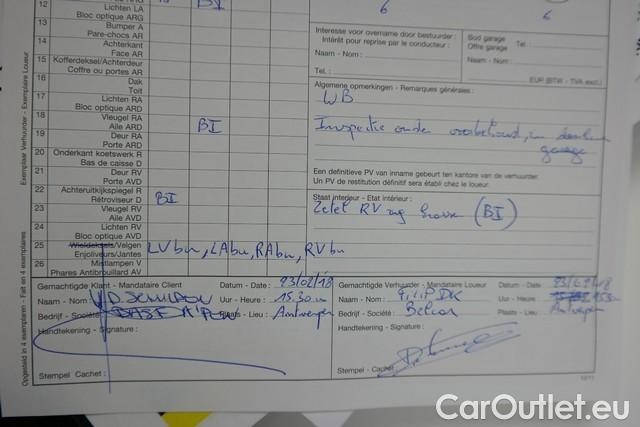 12 Lichten LA
Bloc optique ARG
13 Bumper A
Pare-chocs AR
14 Achterkant
Face AR
15 Kofferdeksel/Achterdeur
Coffre ou portes AR
16 Dak
Toit
17 Lichten RA
Bloc optique ARD
18 Vleugel RA
Aile ARD BI
19 Deur RA
Porte ARD
20 Onderkant koetswerk R
Bas de caisse D
21 Deur RV
Porte AVD
22 Achteruitkijkspiegel R
Rétroviseur D BI
23 Vleugel RV
Aile AVD
24 Lichten RV
Bloc optique AVD
25 Wieldeksels/Velgen
Enjoliveurs/Jantes LVbu, LAbu, RAbu, RVbu
26 Mistlampen V
Phares Antibrouillard AV
6 6
Interesse voor overname door bestuurder :
Intérêt pour reprise par le conducteur :
Naam - Nom :
Tel. :
Bod garage
Offre garage
Tel.
Naam - Nom :
EUR (BTW - TVA excl.)
Algemene opmerkingen - Remarques générales :
WB
Inspectie onder
garage
Een definitieve PV van inname gebeurt ten kantore van de verhuurder.
Un PV de restitution définitif sera établi chez le loueur.
Staat interieur - Etat intérieur :
Zetel RV (BI)
Gemachtigde Klant - Mandataire Client
Datum - Date : 23/02/18
Naam - Nom
Uur - Heure : 15.30
Bedrijf - Société BASF A'PEN
Plaats - Lieu : Antwerpen
Handtekening - Signature :
Stempel Cachet :
Gemachtigde Verhuurder - Mandataire Loueur
Datum - Date :
Naam - Nom :
Uur - Heure
Bedrijf - Société : Belcar
Plaats - Lieu : Antwerpen
Handtekening - Signature :
Stempel - Cachet
Opgesteld in 4 exemplaren - Fait en 4 exemplaires
Exemplaar Verhuurder - Exemplaire Loueur
CarOutlet.eu